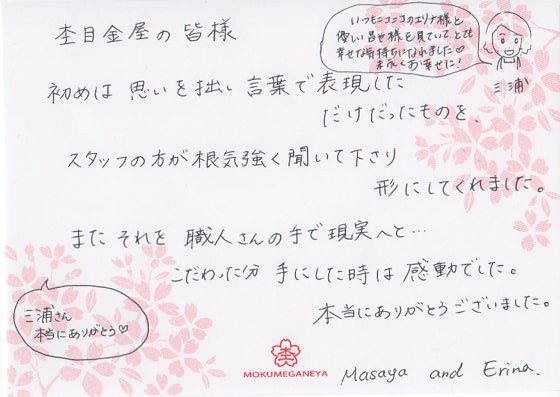 杢目金屋の皆様
いつもニコニコのエリナ様と
優しい昌也様を見ていて、とても
幸せな気持ちになれました♡
末永くお幸せに!
三浦
初めは 思いを拙い 言葉で表現した
だけだったものを、
スタッフの方が根気強く聞いて下さり
形にしてくれました。
また それを 職人さんの手で現実へと…
こだわった分 手にした時は 感動でした。
本当にありがとうございました。
三浦さん
本当にありがとう♡
杢
MOKUMEGANEYA
Masaya and Erina.